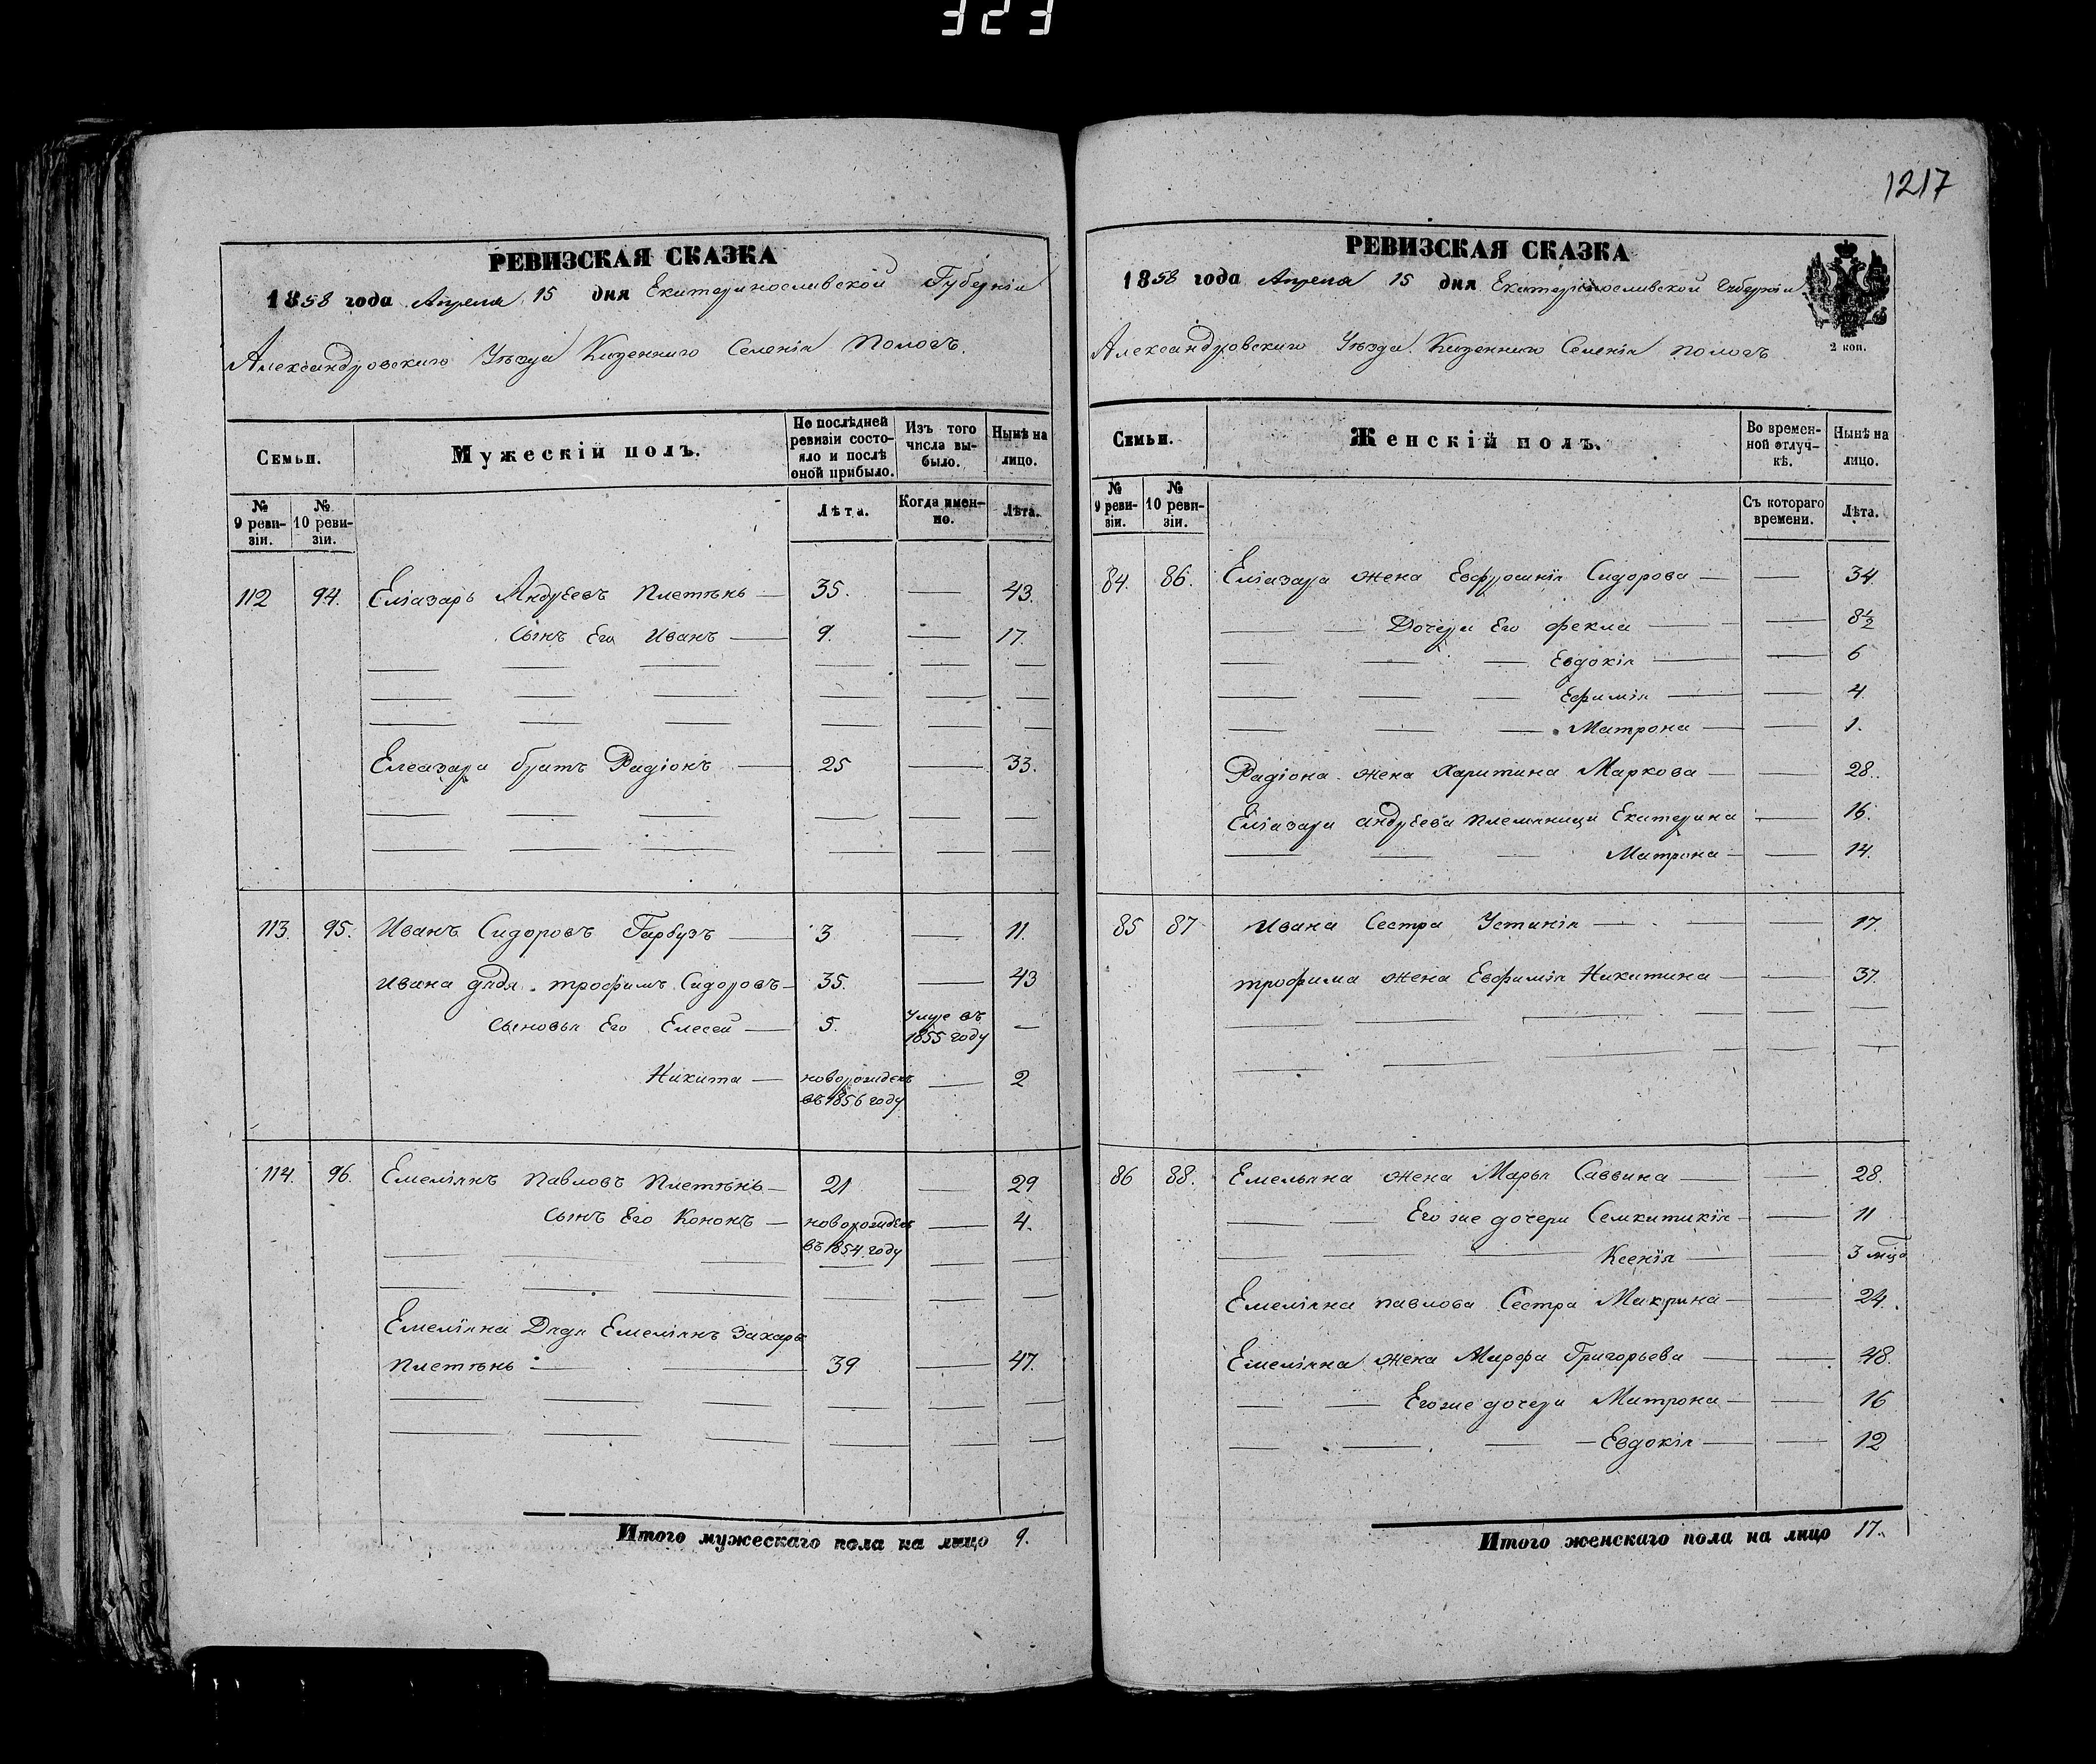 323
1217
РЕВИЗСКАЯ СКАЗКА
1858 года Апреля 15 дня Екатеринославской Губерніи
Александровскаго Уѣзда Казеннаго Селенія Пологъ.
Семьи.
Мужескій полъ.
По послѣдней ревизіи состояло и послѣ оной прибыло.
Изъ того числа выбыло.
Нынѣ на лицо.
№ 9 ревизіи.
№ 10 ревизіи.
Лѣта.
Когда именно.
Лѣта.
112 94. Еліазаръ Андреевъ Плетѣнь — 35. — 43.
Сынъ Его Иванъ — 9. — 17.
Елеазара братъ Радіонъ — 25 — 33.
113. 95. Иванъ Сидоровъ Гарбузъ — 3 — 11.
Ивана дядя трофимъ Сидоровъ — 35. — 43
Сыновья Его Елесей — 5. Умре въ 1855 году —
Никита — новорожденъ въ 1856 году — 2
114. 96. Емеліянъ Павловъ Плетѣнь — 21 — 29
Сынъ Его Кононъ — новорожденъ въ 1854 году — 4.
Емеліяна Дядя Емеліянъ Захаръ
Плетѣнь — 39 — 47.
Итого мужескаго пола на лицо 9.
РЕВИЗСКАЯ СКАЗКА
1858 года Апреля 15 дня Екатеринославской Губерніи
2 коп.
Александровскаго Уѣзда Казеннаго Селенія пологъ
Семьи.
Женскій полъ.
Во временной отлучкѣ.
Нынѣ на лицо.
№ 9 ревизіи.
№ 10 ревизіи.
Съ котораго времени.
Лѣта.
84. 86. Еліазара жена Евфросинія Сидорова — — 34.
Дочери Его Фекла — — 8½
Евдокія — — 6
Ефимія — — 4.
Матрона — — 1.
Радіона жена Харитина Маркова — — 28.
Еліазара Андреева племяници Екатерина — 16.
Матрона — — 14.
85 87 Ивана Сестра Устинія — — 17.
трофима жена Евфимія Никитина — — 37.
86 88. Емельяна жена Марья Саввина — — 28.
Его же дочери Семкитикія — — 11
Ксенія — — 3 мѣс
Емеліяна павлова Сестра Макрина — — 24.
Емеліяна жена Марфа Григорьева — — 48.
Его же дочери Матрона — — 16
Евдокія — — 12
Итого женскаго пола на лицо 17.